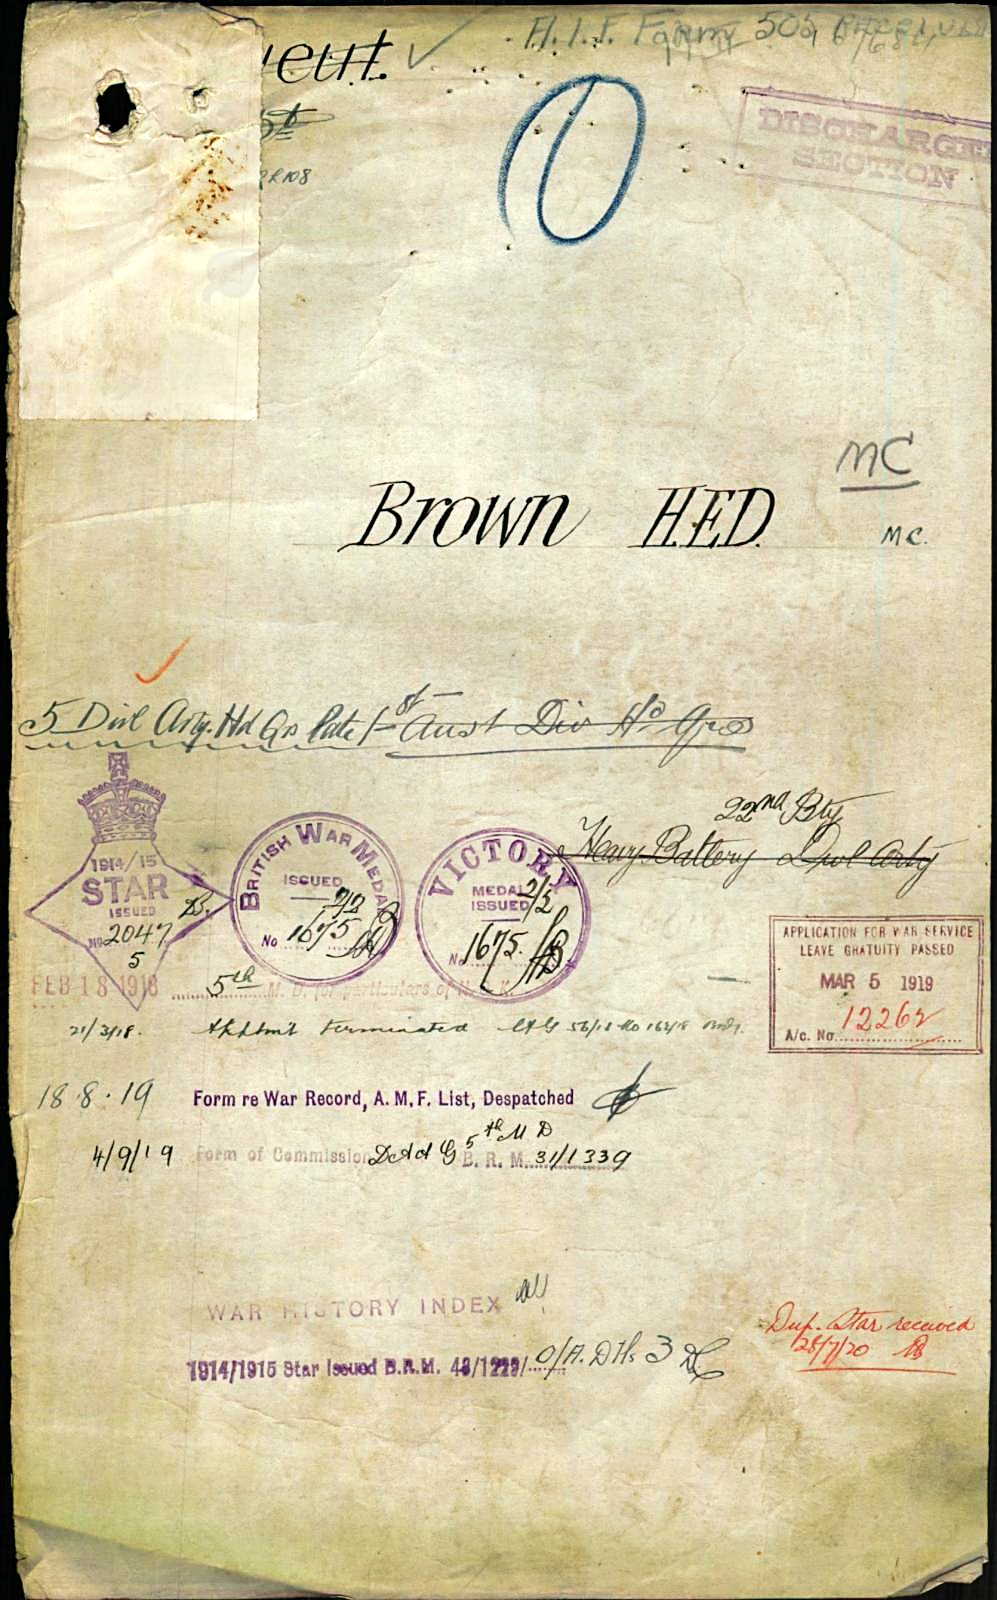 A.I.F. Form 505 RECEIVED
ieut.
DISCHARGE
SECTION
MC
Brown H.E.D.
M.C.
5 Divl Arty. Hd Qrs late 1st Aust Div Hd Qrs
22nd Bty
Heavy Battery Divl Arty
1914/15
STAR
ISSUED
No 2047
5
BRITISH WAR MEDAL
ISSUED
2/2
No 1675
VICTORY
MEDAL 2/2
ISSUED
No 1675.
APPLICATION FOR WAR SERVICE
LEAVE GRATUITY PASSED
MAR 5 1919
A/c. No. 12262
FEB 18 1918 5th M. D. for particulars of N. O. K.
21/3/18. Appmt terminated
18.8.19 Form re War Record, A.M.F. List, Despatched
4/9/19 Form of Commission DAAG 5th MD B.R.M. 31/1339
WAR HISTORY INDEX
1914/1915 Star Issued B.R.M. 43/1229/
Dup. Star received
28/7/20